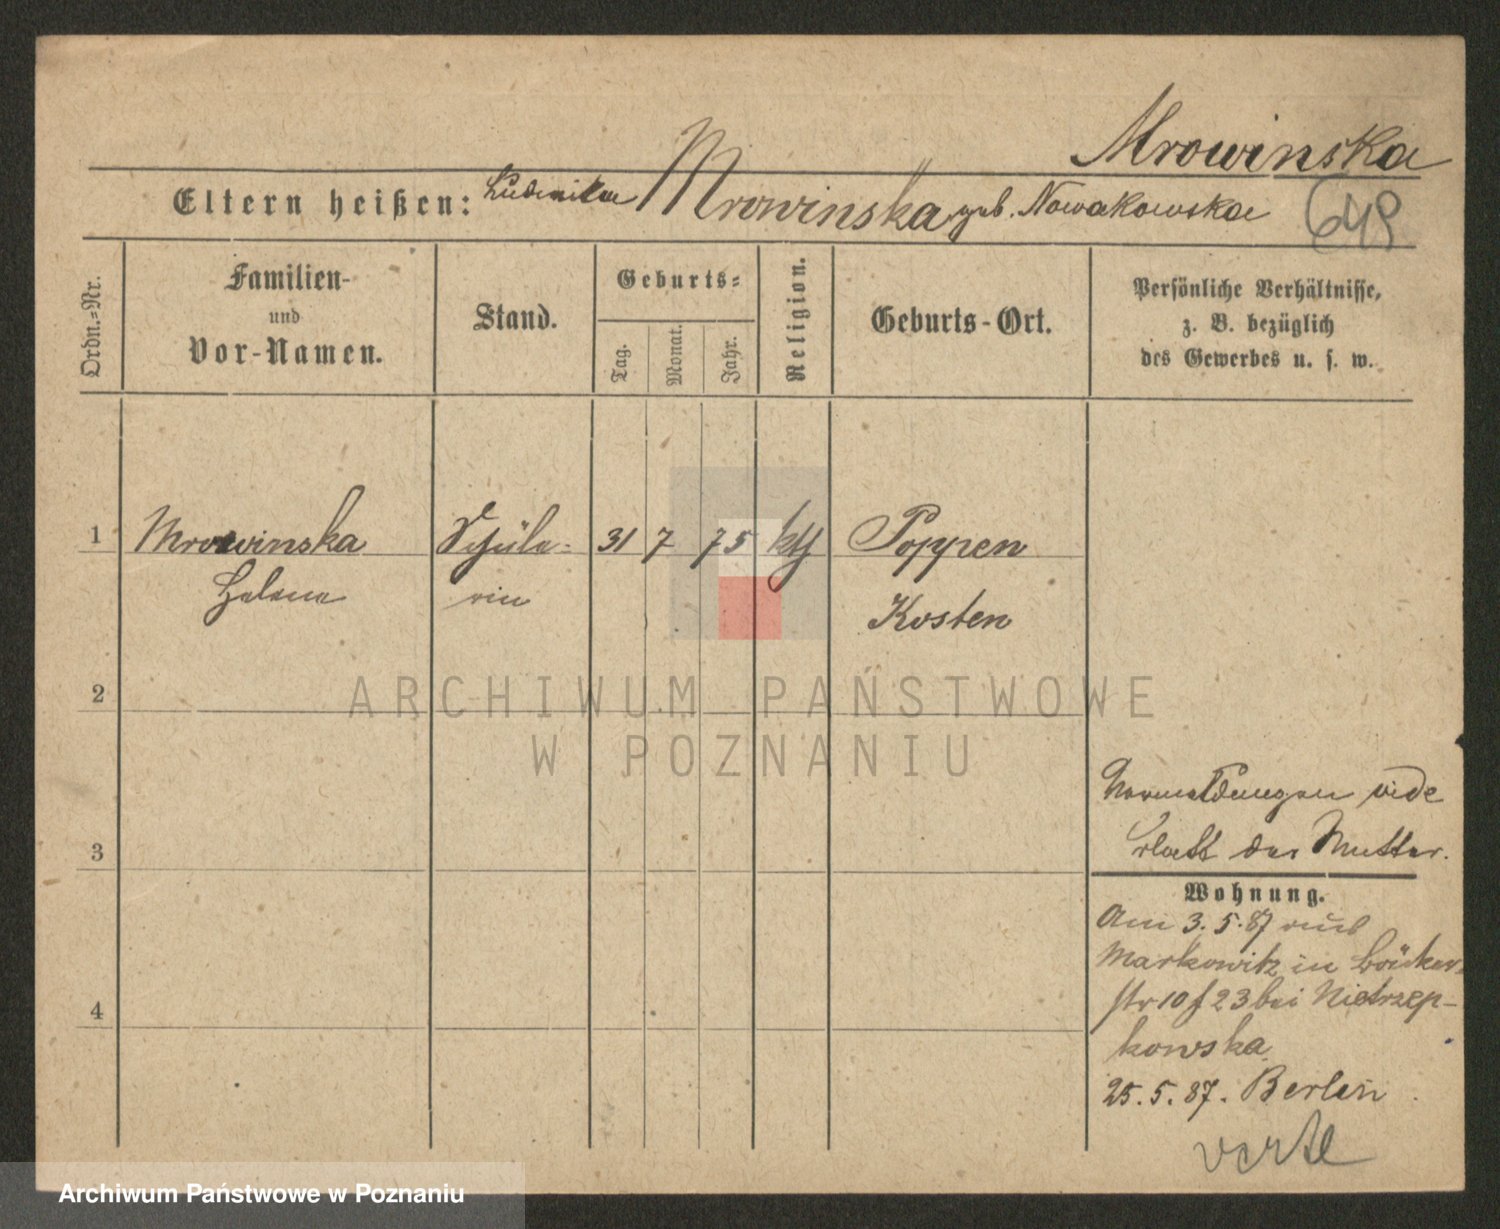 Mrowinska
Eltern heißen: Ludowika Mrowinska geb. Nowakowska
649
Ordn.-Nr.
Familien-
und
Vor-Namen.
Stand.
Geburts-
Tag.
Monat.
Jahr.
Religion.
Geburts-Ort.
Persönliche Verhältnisse,
z. B. bezüglich
des Gewerbes u. s. w.
1 Mrowinska Schüle- 31 7 75 kth Poppen
Helena rin Kosten
2
ARCHIWUM PAŃSTWOWE
W POZNANIU
Vormeldungen vide
3 Blatt der Mutter.
Wohnung.
Am 3. 5. 87 aus
Markowitz in Bäcker-
str 10 f 23 bei Nietrzep-
4
kowska
25. 5. 87. Berlin
verte
Archiwum Państwowe w Poznaniu